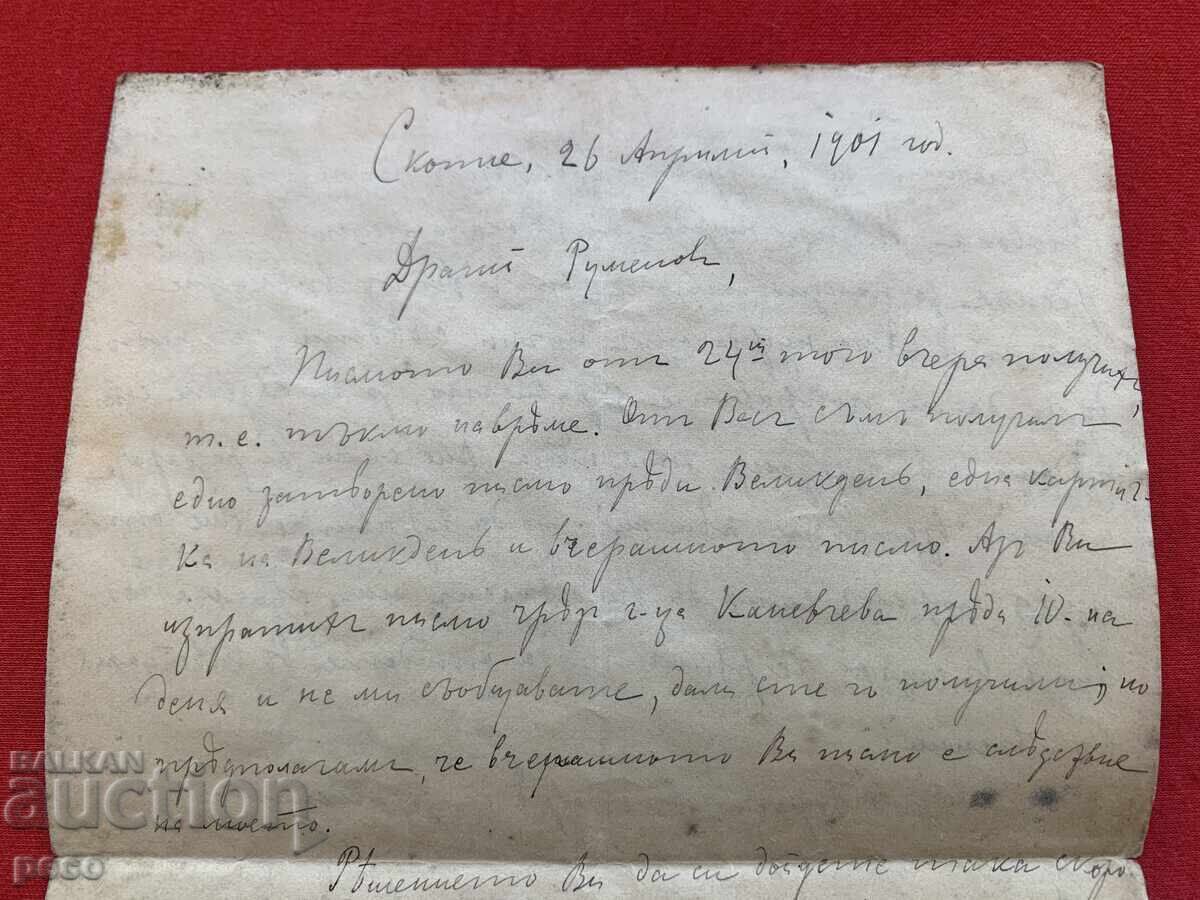 Скопие, 26 Априлий, 1901 год.
Драгий Руменовъ,
Писмото Ви отъ 24ий того вчера получихъ,
т. е. тъкмо навръме. Отъ Васъ съмъ получилъ
едно затворено писмо пръди Великдень, една картич-
ка на Великдень и вчерашното писмо. Азъ Ви
изпратихъ писмо чръзъ г-ца Каневчева пръди 10-на
деня и не ми съобщавате, дали сте го получили, но
пръдполагамъ, че вчерашното Ви писмо е
на моето.
Рѣшението Ви да си дойдете така скоро
BALKAN
auction
peco